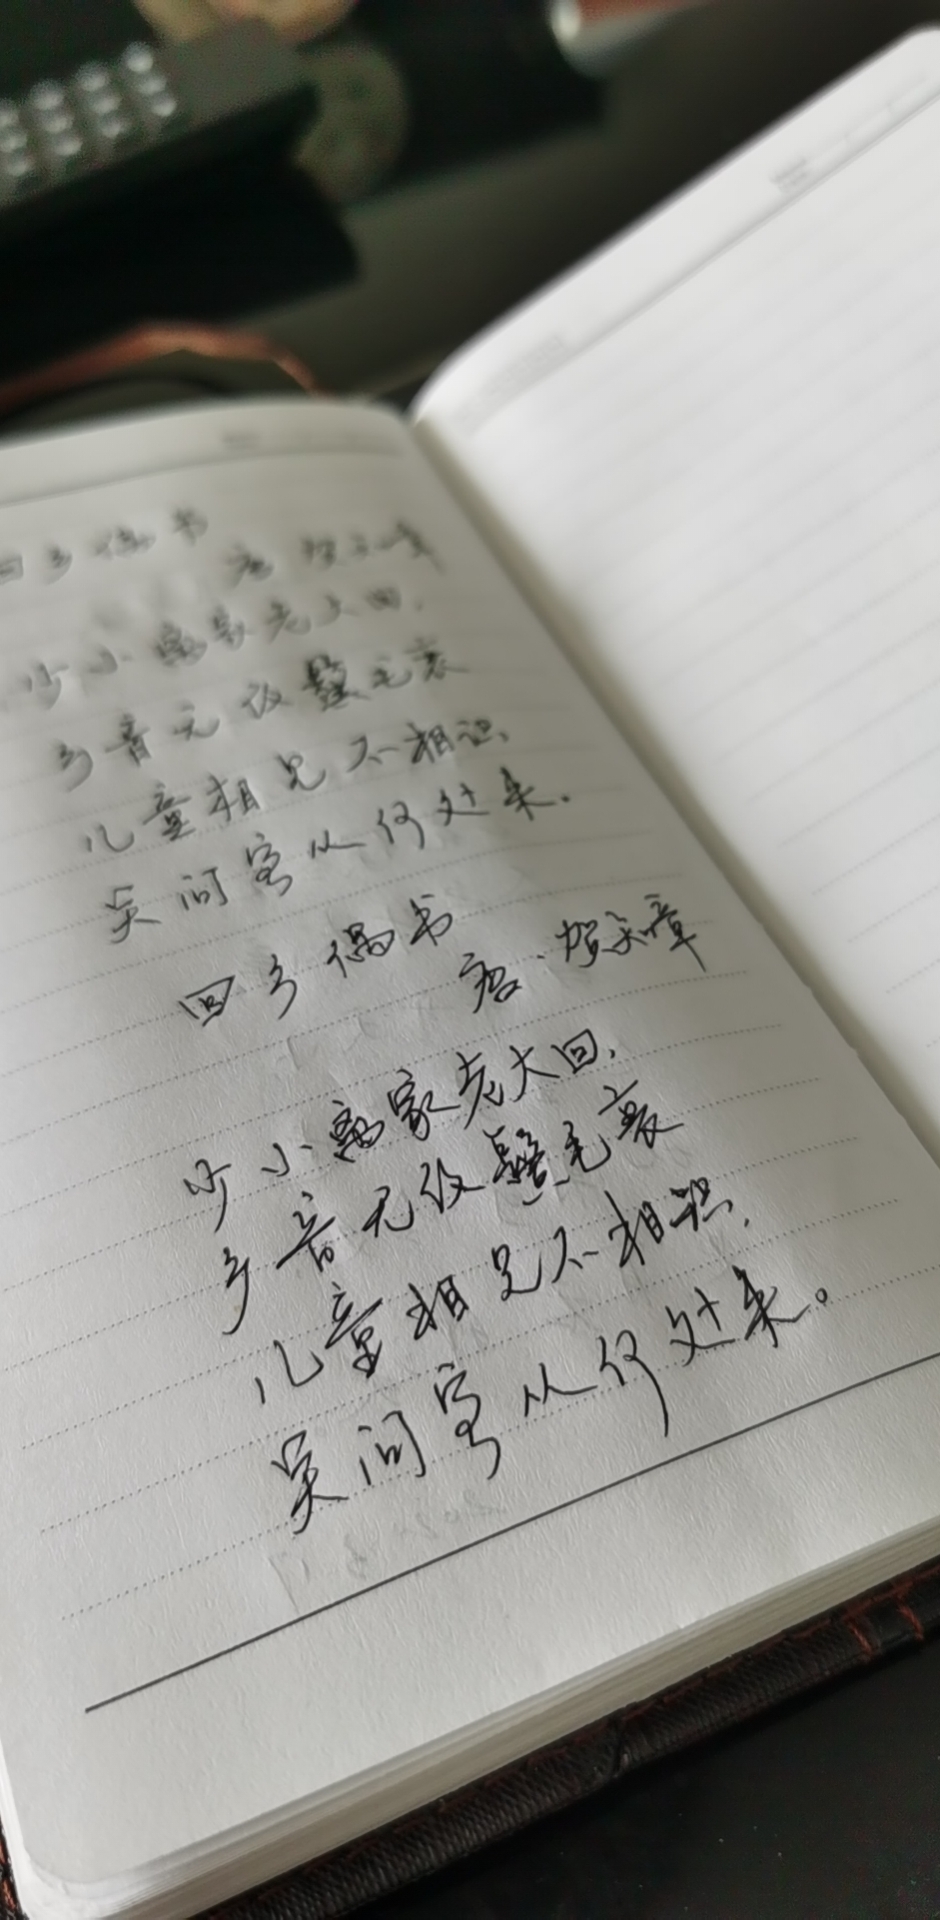 回乡偶书
唐 贺知章
少小离家老大回,
乡音无改鬓毛衰
儿童相见不相识,
笑问客从何处来。
回乡偶书
唐·贺知章
少小离家老大回,
乡音无改鬓毛衰
儿童相见不相识,
笑问客从何处来。